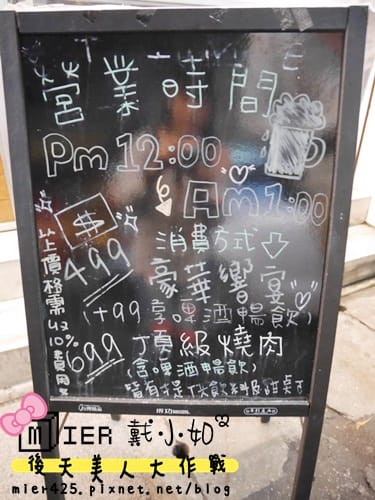 TIME
營業時間
Pm 12:00
Am 1:00
消費方式
$
499 豪華饗宴
(+99享啤酒暢飲)
699 頂級燒肉
(含啤酒暢飲)
皆有提供飲料及
以上價格需收10%費用
MIER 戴小如
後天美人大作戰
mier425.pixnet.net/blog